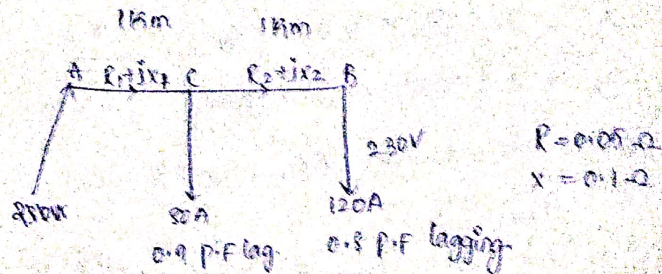 1km 1km
A R₁+jx₁ C R₂+jx₂ B
230V
R = 0.05 Ω
x = 0.1 Ω
120A
0.9 P.F lag
0.8 P.F lagging.